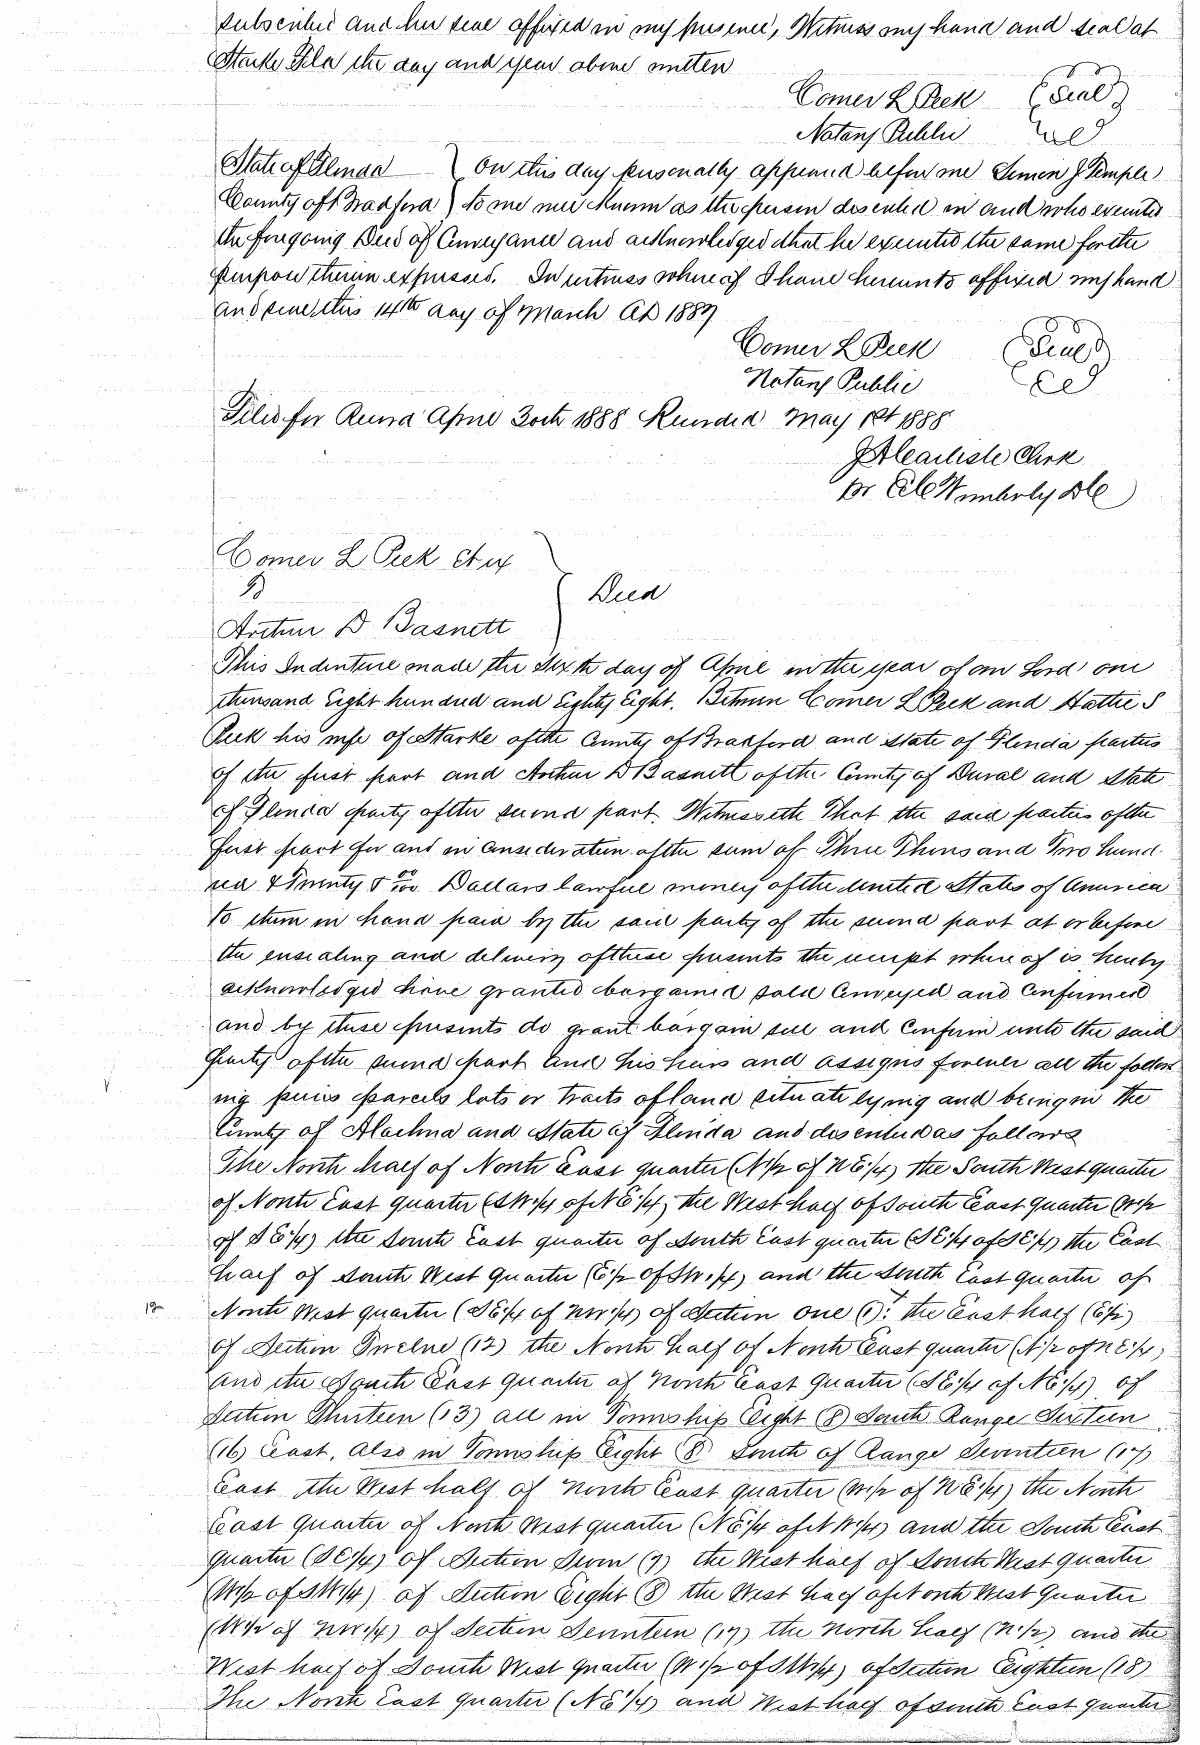 subscribed and her seal affixed in my presence, Witness my hand and seal at
Starke Fla the day and year above written
Comer L Peek (Seal)
Notary Public
State of Florida } On this day personally appeared before me Simon J Temple
County of Bradford } to me well known as the person described in and who executed
the foregoing Deed of Conveyance and acknowledged that he executed the same for the
purpose therein expressed. In witness whereof I have hereunto affixed my hand
and seal this 14th day of March AD 1887
Comer L Peek (Seal)
Notary Public
Filed for Record April 30th 1888 Recorded May 1st 1888
J A Carlisle Clerk
Pr Wimberly DC
Comer L Peek et ux
To } Deed
Arthur D Basnett
This Indenture made the Sixth day of April in the year of our Lord one
thousand Eight hundred and Eighty Eight. Between Comer L Peek and Hattie S
Peek his wife of Starke of the County of Bradford and State of Florida parties
of the first part and Arthur D Basnett of the County of Duval and State
of Florida party of the second part. Witnesseth That the said parties of the
first part for and in consideration of the sum of Three Thousand Two hund-
red & Twenty & 00/100 Dollars lawful money of the United States of America
to them in hand paid by the said party of the second part at or before
the ensealing and delivery of these presents the receipt where of is hereby
acknowledged have granted bargained sold conveyed and confirmed
and by these presents do grant bargain sell and confirm unto the said
party of the second part and his heirs and assigns forever all the follow
ing pieces parcels lots or tracts of land situate lying and being in the
County of Alachua and State of Florida and described as follows
The North half of North East quarter (N½ of NE¼) the South West quarter
of North East quarter (SW¼ of NE¼) the West half of South East quarter (W½
of SE¼) the South East quarter of South East quarter (SE¼ of SE¼) the East
half of South West quarter (E½ of SW¼) and the South East quarter of
North West quarter (SE¼ of NW¼) of Section one (1): the East half (E½)
of Section Twelve (12) the North half of North East quarter (N½ of NE¼)
and the South East quarter of North East Quarter (SE¼ of NE¼) of
Section Thirteen (13) all in Township Eight (8) South Range Sixteen
(16) East, Also in Township Eight (8) South of Range Seventeen (17)
East the West half of North East quarter (W½ of NE¼) the North
East Quarter of North West quarter (NE¼ of NW¼) and the South East
quarter (SE¼) of Section Seven (7) the West half of South West quarter
(W½ of SW¼) of Section Eight (8) the West half of North West Quarter
(W½ of NW¼) of Section Seventeen (17) the North half (N½) and the
West half of South West quarter (W½ of SW¼) of Section Eighteen (18)
The North East quarter (NE¼) and West half of South East quarter